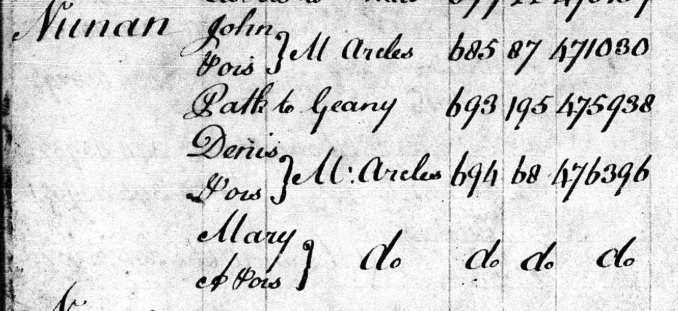 Nunan John
& ors } M Arcles 685 87 471030
Patk to Geany 693 195 475938
Denis
& ors } M. Arcles 694 68 476396
Mary
& ors } do do do do